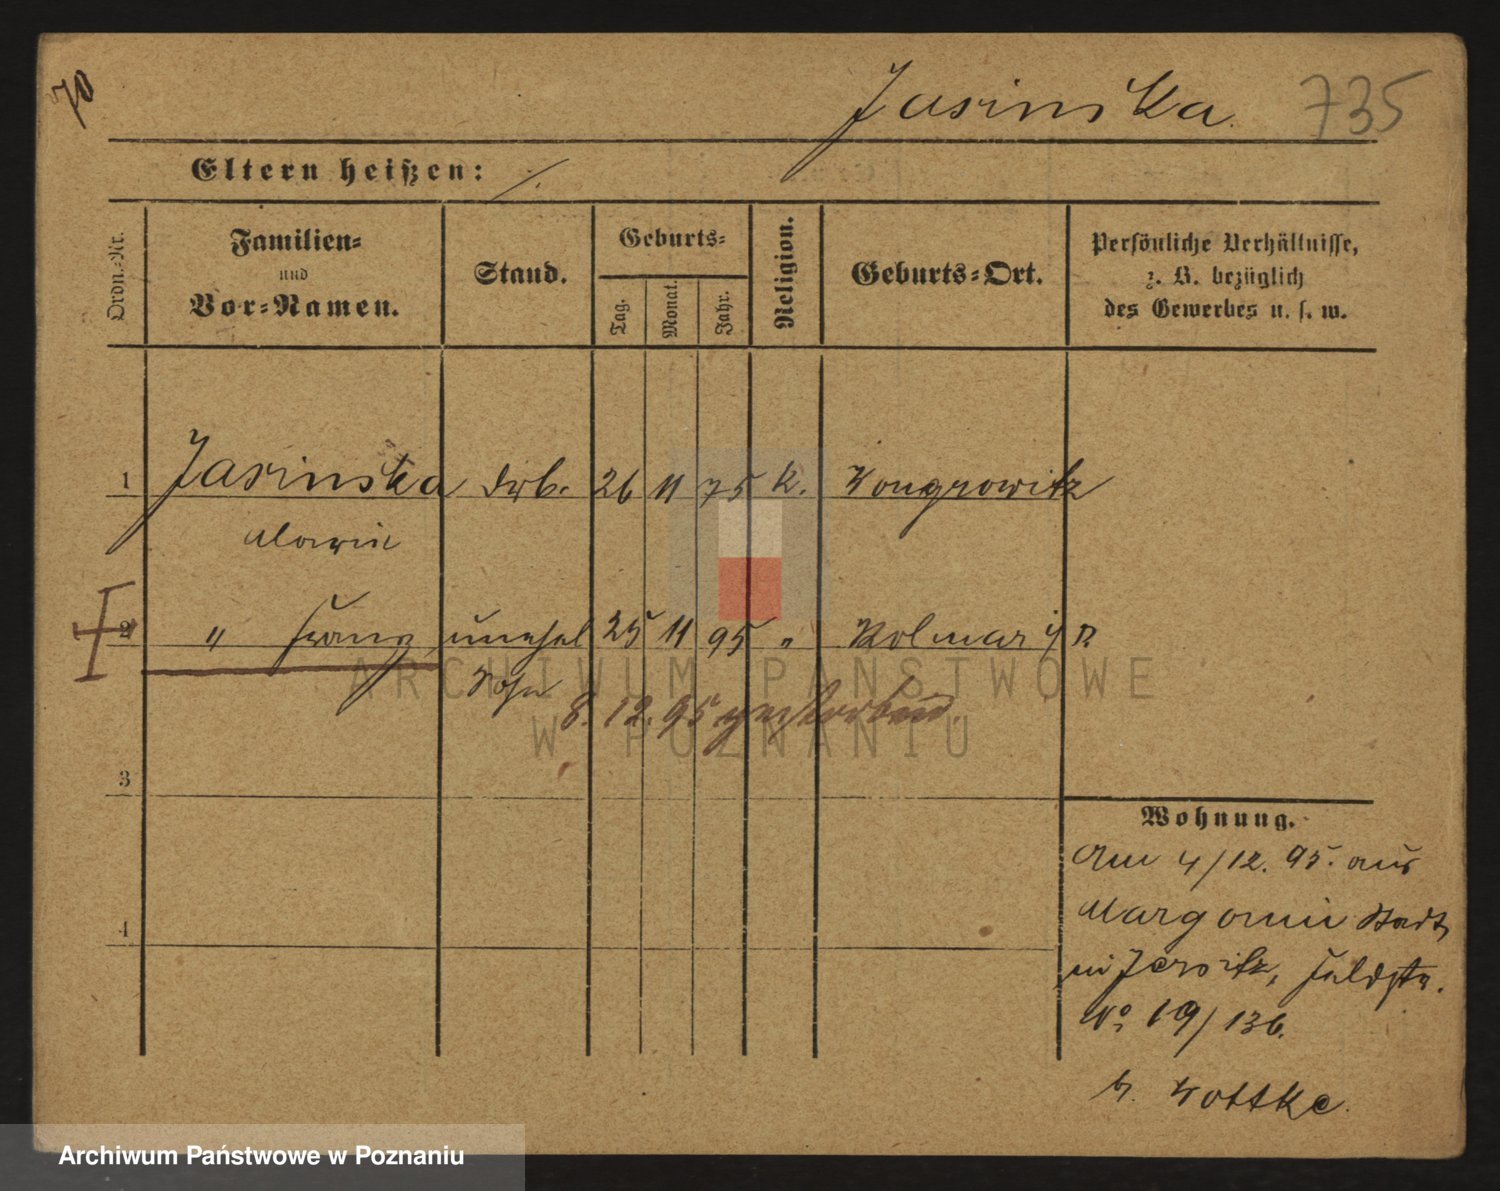 70
Jasinska. 735
Eltern heißen: /.
Ordn.-Nr.
Familien-
und
Vor-Namen.
Stand.
Geburts-
Tag.
Monat.
Jahr.
Religion.
Geburts-Ort.
Persönliche Verhältnisse,
z. B. bezüglich
des Gewerbes u. s. w.
1 Jasinska 26 11 75 K. Wongrowitz
Marie
2 " Franz, unehel 25 11 95 " Kolmar i/P
Sohn
8. 12. 95 gestorben.
ARCHIWUM PAŃSTWOWE
W POZNANIU
3
4
Wohnung.
Am 4/12. 95. aus
Margonin Stadt,
in Jersitz, Feldstr.
No. 19/136.
b. Wottke.
Archiwum Państwowe w Poznaniu